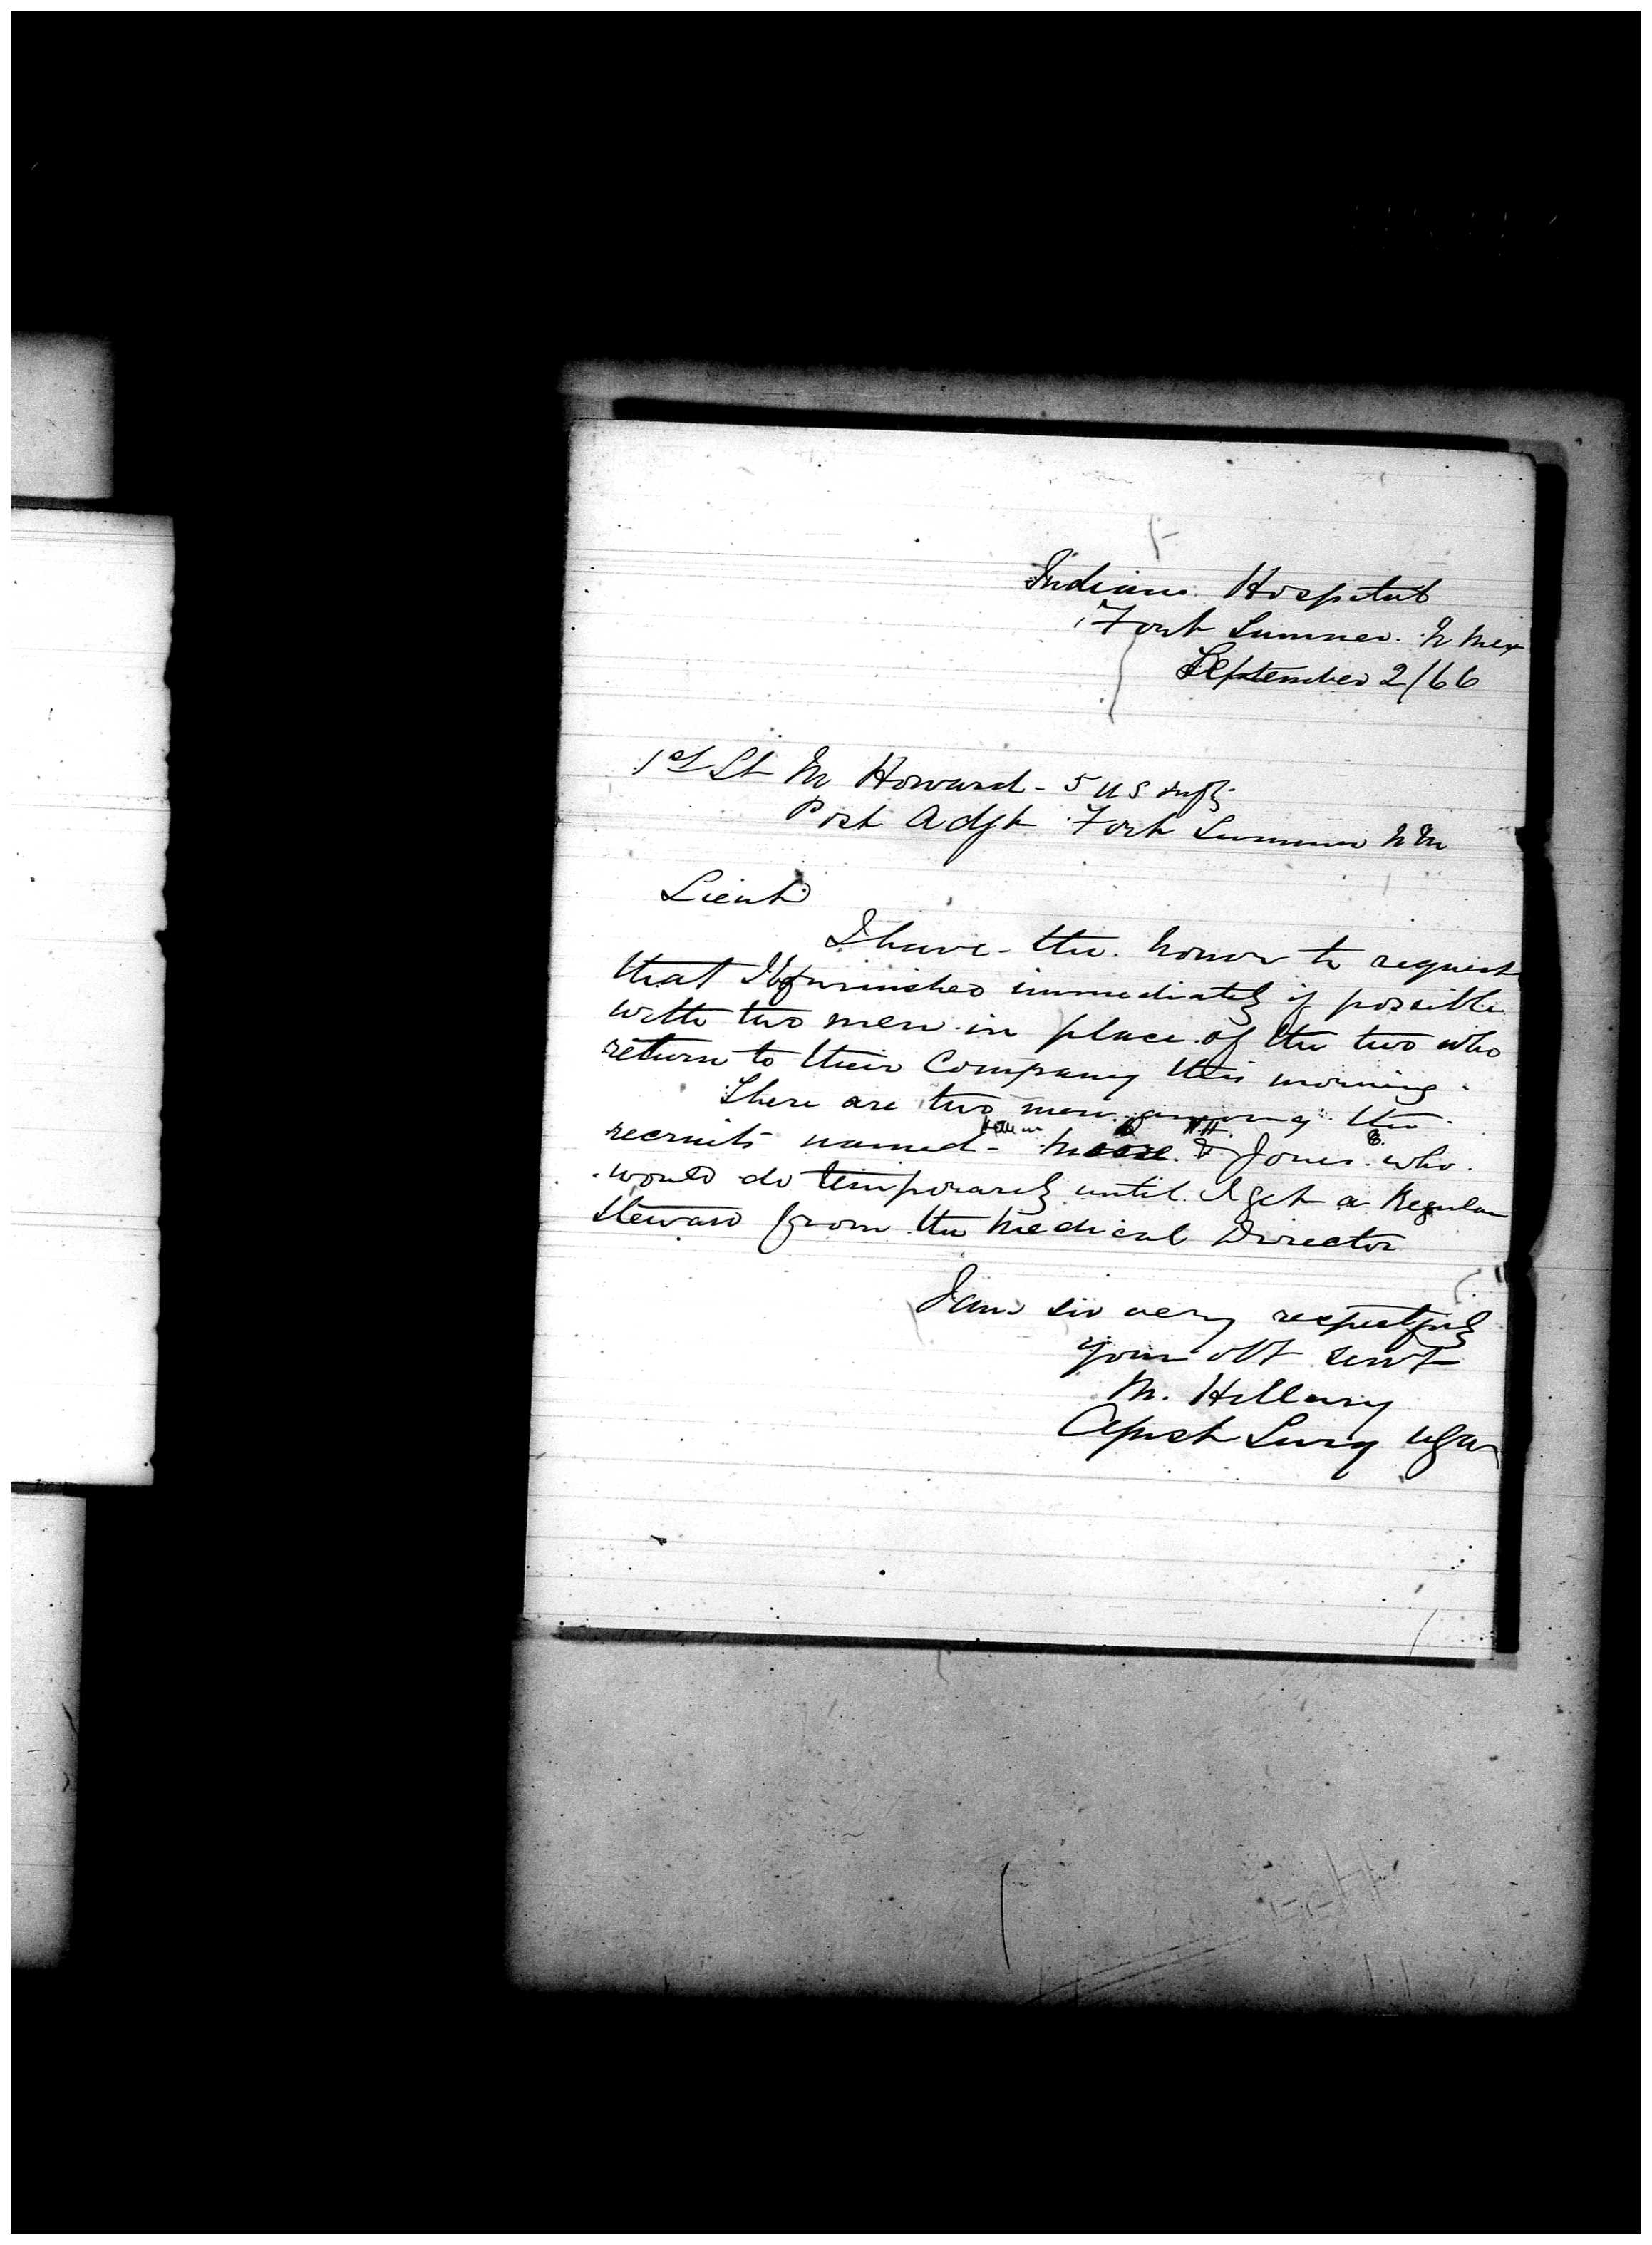 Indian Hospital
Fort Sumner N Mex
September 2/66
1st Lt M Howard - 5 US Infty
Post Adjt Fort Sumner N M
Lieut
I have the honor to request
that I be furnished immediately if possible
with two men in place of the two who
return to their Company this morning.
There are two men among the
recruits named - & Jones who
would do temporarily until I get a Regular
Steward from the Medical Director
I am sir very respectfuly
your obt servt
M. Hillary
Asst Surg USA